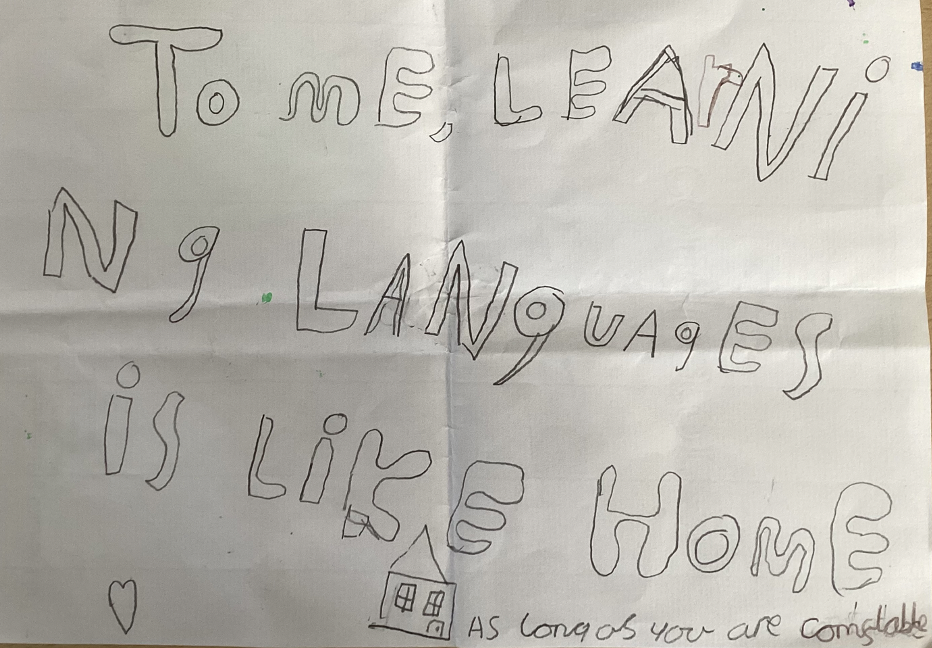 To mE, LEArNi
Ng LANgUAgES
iS LiKE HOmE
AS long as you are